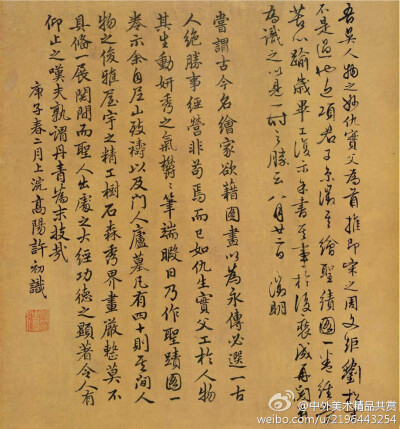 吾吴人物之妙仇實父為首推即宋之周文矩劉松
不是過也近項君子京深之繪聖蹟圖一卷經
苦心踰歲畢工復示余書其事於後裝成再閱
為識之以見一時之勝云八月廿二日 徵明
嘗謂古今名繪家欲藉圖畫以為永傳必選一古
人絶勝事經營非苟焉而已如仇生實父工於人物
其生動妍秀之氣欝〻筆端暇日乃作聖蹟圖一
卷示余自尼山致禱以及門人廬墓凡有四十則其间人
物之俊雅屋宇之精工樹石森秀界畫嚴整莫不
具俻一展閱間而聖人出處之大經功德之顯著令人有
仰止之嘆夫孰謂丹青為末技哉
庚子春二月上浣高陽許初識
@中外美术精品共赏
weibo.com/u/2196443254